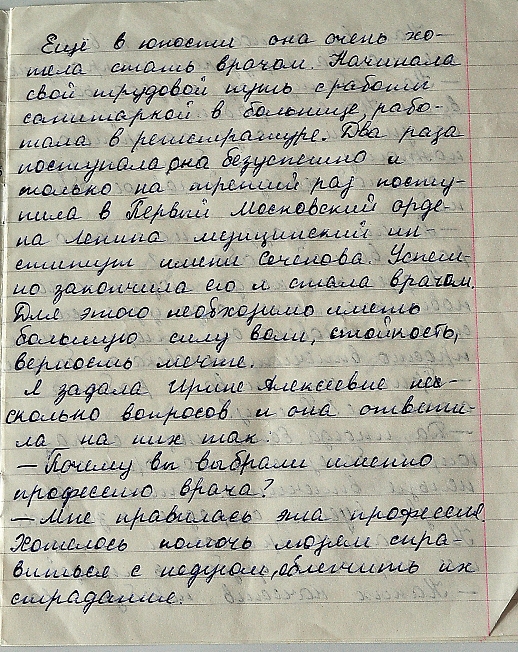 Ещё в юности она очень хо-
тела стать врачом. Начинала
свой трудовой путь с работы
санитаркой в больнице, рабо-
тала в регистратуре. Два раза
поступала она безуспешно и
только на третий раз посту-
пила в Первый Московский орде-
на Ленина медицинский ин-
ститут имени Сеченова. Успеш-
но закончила его и стала врачом.
Для этого необходимо иметь
большую силу воли, стойкость,
верность мечте.
Я задала Ирине Алексеевне нес-
сколько вопросов и она ответи-
ла на них так:
– Почему вы выбрали именно
профессию врача?
– Мне нравилась эта профессия.
Хотелось помочь людям спра-
виться с недугом, облегчить их
страдание.